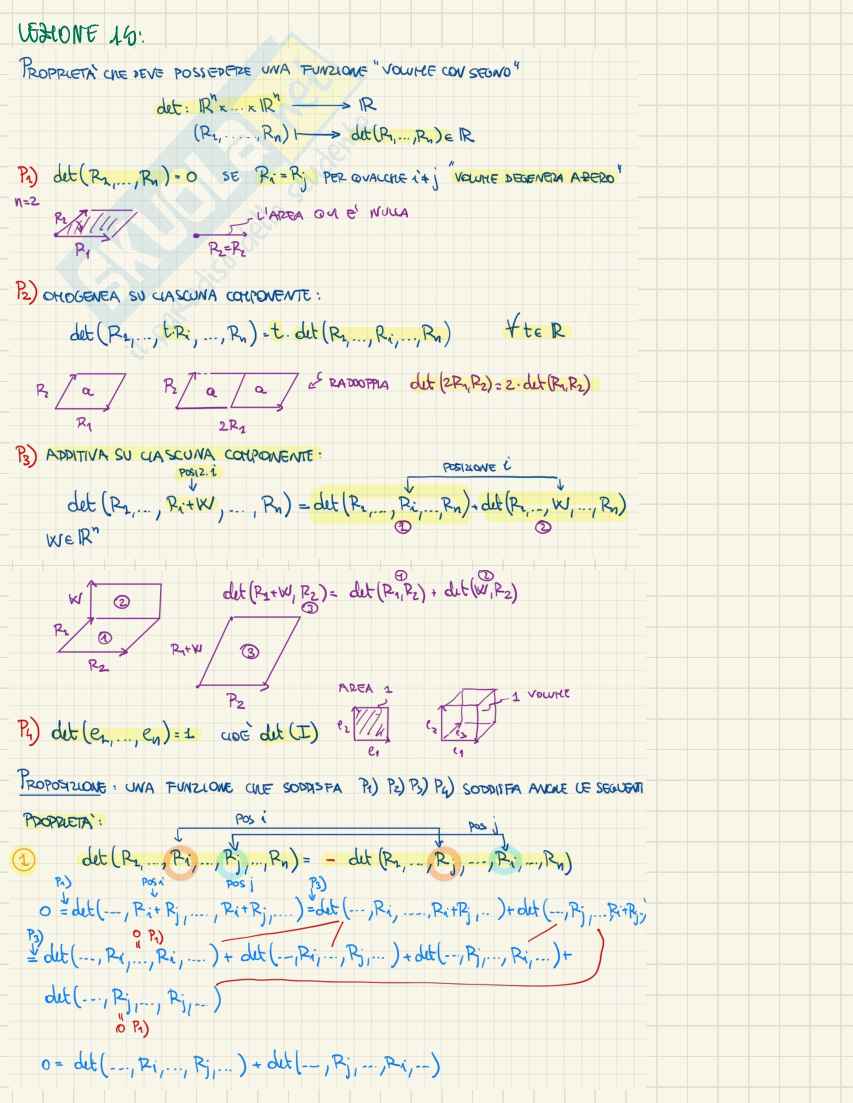 LEZIONE 15:
PROPRIETÀ CHE DEVE POSSEDERE UNA FUNZIONE "VOLUME CON SEGNO"
det: ℝⁿ x ... x ℝⁿ → ℝ
(R₁, ....., Rₙ) ↦ det(R₁,...,Rₙ) ∈ ℝ
P₁) det(R₁,...,Rₙ) = 0 SE Ri = Rj PER QUALCHE i≠j "VOLUME DEGENERA A ZERO"
n=2
R₂
L'AREA QUI E' NULLA
R₁
R₂=R₂
P₂) OMOGENEA SU CIASCUNA COMPONENTE:
det(R₁,..., t·Ri, ..., Rₙ) = t. det(R₁,...,Ri,...,Rₙ) ∀ t ∈ ℝ
R₂ a R₂ a a RADDOPPIA det(2R₁,R₂) = 2·det(R₁,R₂)
R₁ 2R₁
P₃) ADDITIVA SU CIASCUNA COMPONENTE:
POSIZ. i POSIZIONE i
det(R₁,..., Ri+W, ..., Rₙ) = det(R₁,..., Ri,...,Rₙ) + det(R₁,..., W,...,Rₙ)
① ②
W ∈ ℝⁿ
① ②
W ② det(R₁+W, R₂) = det(R₁,R₂) + det(W,R₂)
③
R₁ ① R₁+W ③
R₂
R₂
AREA 1 1 VOLUME
P₄) det(e₁,...,eₙ) = 1 CIOÈ det(I) e₂ e₂ e₃
e₁ e₁
PROPOSIZIONE: UNA FUNZIONE CHE SODDISFA P₁) P₂) P₃) P₄) SODDISFA ANCHE LE SEGUENTI
PROPRIETÀ:
POS i POS j
① det(R₁,..., Ri,..., Rj,..., Rₙ) = - det(R₁,..., Rj,..., Ri,..., Rₙ)
P₁) POS i POS j P₃)
0 = det(..., Ri+Rj,..., Ri+Rj,...) = det(...,Ri,...,Ri+Rj,...) + det(...,Rj,...Ri+Rj,
P₃) 0 P₁)
= det(..., Ri,..., Ri,...) + det(...,Ri,..., Rj,...) + det(...,Rj,..., Ri,...) +
det(..., Rj,..., Rj,...)
0 P₁)
0 = det(..., Ri,..., Rj,...) + det(..., Rj,...,Ri,...)
SKUOLA.net